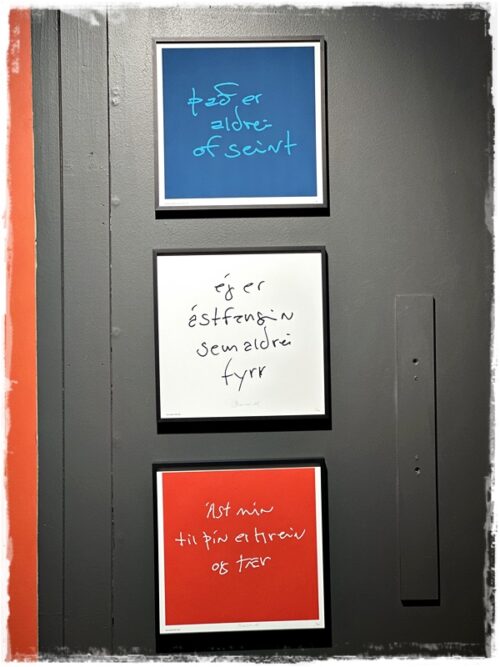 það er
aldrei
of seint
ég er
ástfangin
sem aldrei
fyrr
Ást mín
til þín er hrein
og tær